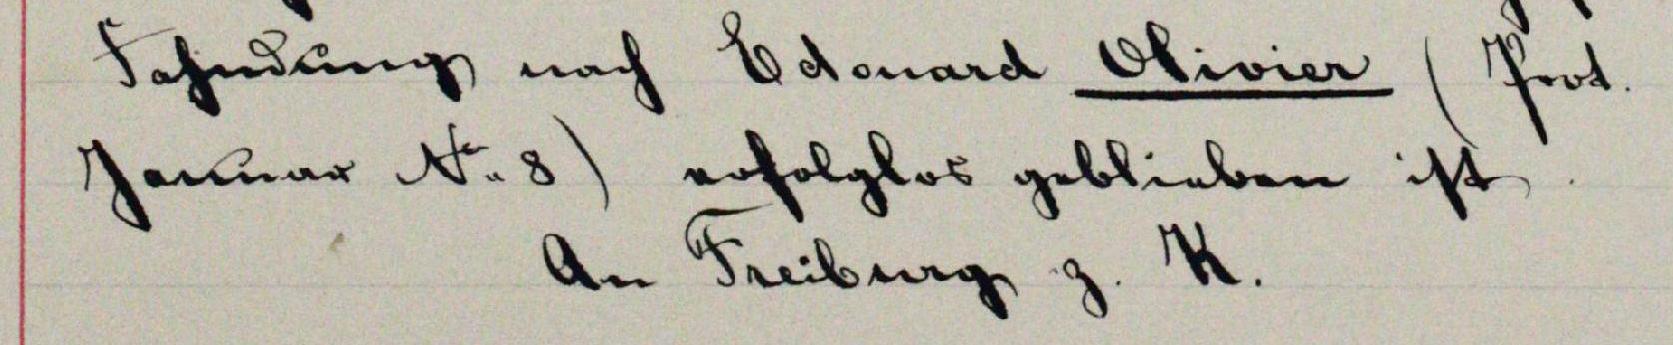 Fahndung nach Edouard Olivier (Prot.
Januar No. 8) erfolglos geblieben ist.
An Freiburg z. K.